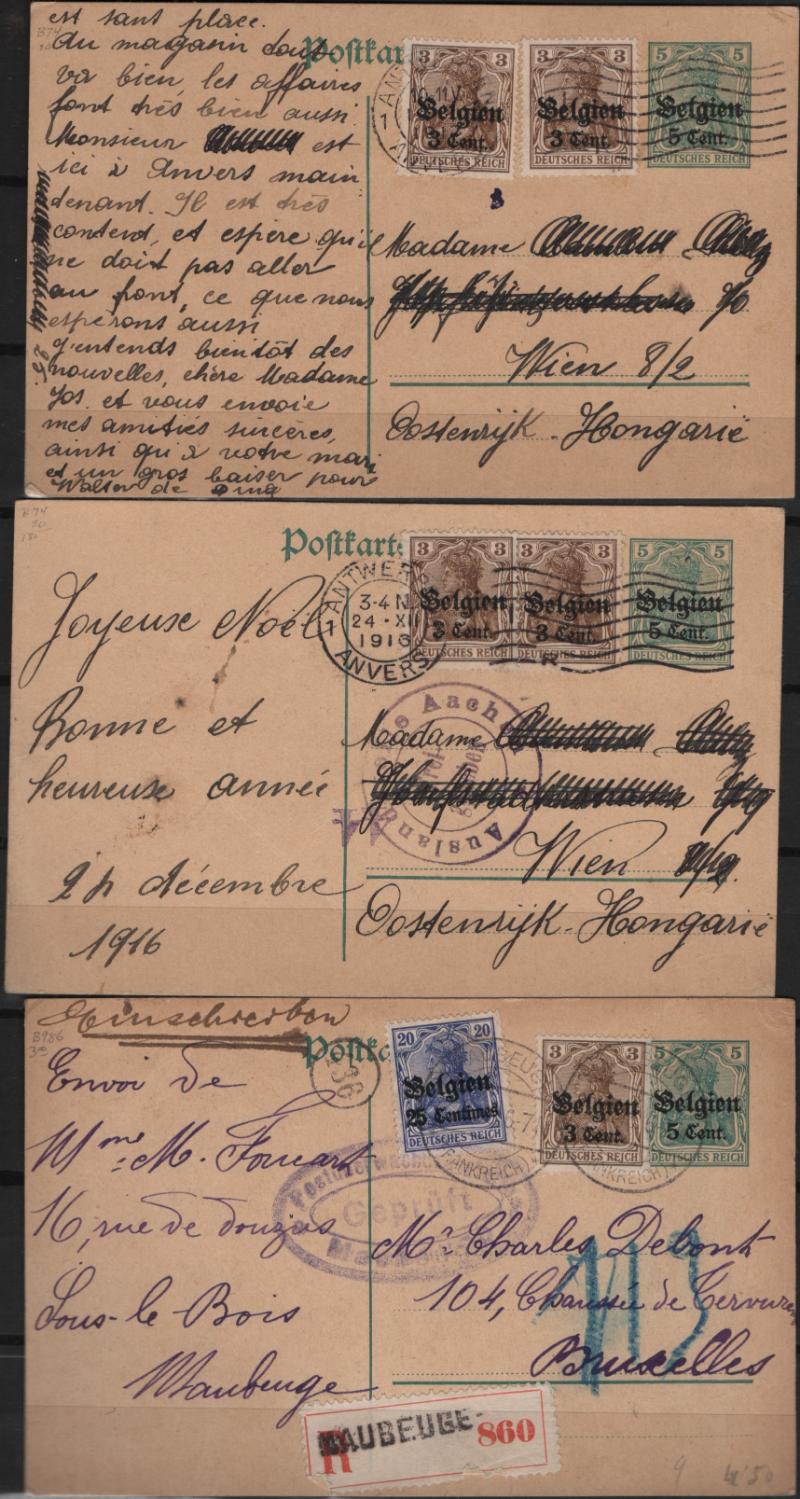 est sant place.
du magasin tout
va bien, les affaires
font très bien aussi.
Monsieur est
ici à Anvers main
tenant. Il est très
content, et espère qu'il
ne doit pas aller
au front, ce que nous
espérons aussi
J'entends bientôt des
nouvelles, chère Madame
Jos. et vous envoie
mes amitiés sincères,
ainsi qu'à votre mari
et un gros baiser pour
Walter de
B74
Postkar
3 3
Belgien
3 Cent.
DEUTSCHES REICH
3 3
Belgien
3 Cent.
DEUTSCHES REICH
5 5
Belgien
5 Cent.
DEUTSCHES REICH
1
3
Madame
Wien 8/2
Oostenrijk-Hongarië
B74
Postkarte
3 3
Belgien
3 Cent.
DEUTSCHES REICH
3 3
Belgien
3 Cent.
DEUTSCHES REICH
5 5
Belgien
5 Cent.
DEUTSCHES REICH
1 ANTWER
3-4 N
24 · XII
1916
ANVERS
Joyeuse Noël
Bonne et
heureuse année
24 décembre
1916
Auslan Aach
Madame
Wien
Oostenrijk-Hongarië
Einschreiben
B986
Postka
236
20 20
Belgien
25 Centimes
DEUTSCHES REICH
3 3
Belgien
3 Cent.
5 5
Belgien
5 Cent.
DEUTSCHES REICH
(FRANKREICH)
Envoi de
Mme M. Foucart
16, rue de douzies
Sous-le Bois
Maubeuge
Postüberwach
Geprüft
Mr Charles Debont
104, Chaussée de Tervuren
Bruxelles
113
R MAUBEUGE. 860
9
4'50